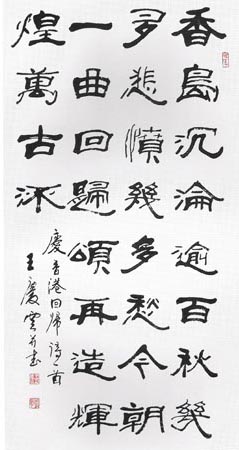 香島沉淪逾百秋幾
多悲憤幾多愁今朝
一曲回歸頌再造輝
煌萬古流
慶香港回歸詩一首
王慶雲并書